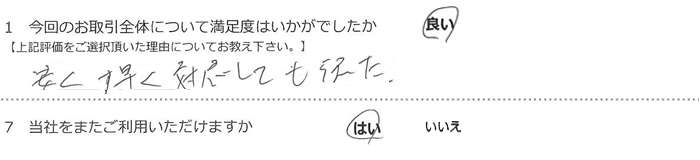 1 今回のお取引全体について満足度はいかがでしたか 良い
【上記評価をご選択頂いた理由についてお教え下さい。】
安く す早く 対応してもらえた。
7 当社をまたご利用いただけますか はい いいえ